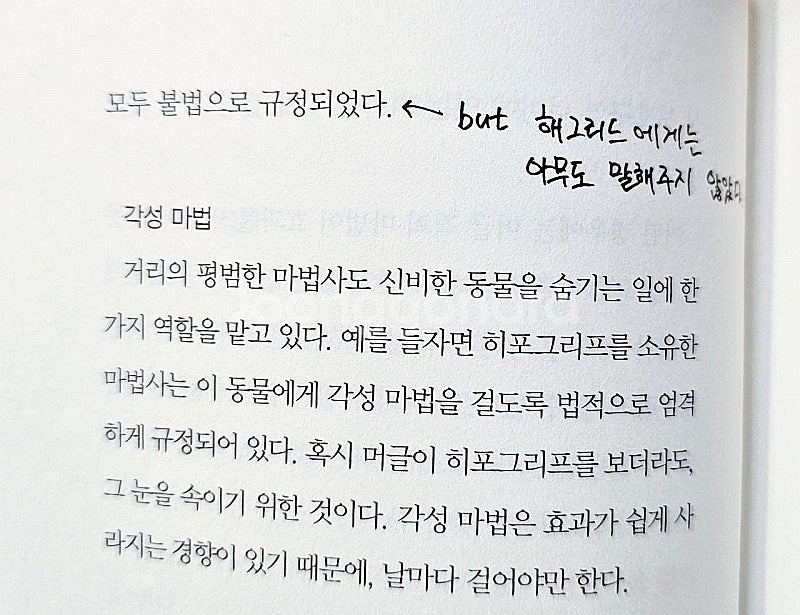 모두 불법으로 규정되었다. ← but 해그리드에게는
아무도 말해주지 않았다
각성 마법
거리의 평범한 마법사도 신비한 동물을 숨기는 일에 한
가지 역할을 맡고 있다. 예를 들자면 히포그리프를 소유한
마법사는 이 동물에게 각성 마법을 걸도록 법적으로 엄격
하게 규정되어 있다. 혹시 머글이 히포그리프를 보더라도,
그 눈을 속이기 위한 것이다. 각성 마법은 효과가 쉽게 사
라지는 경향이 있기 때문에, 날마다 걸어야만 한다.